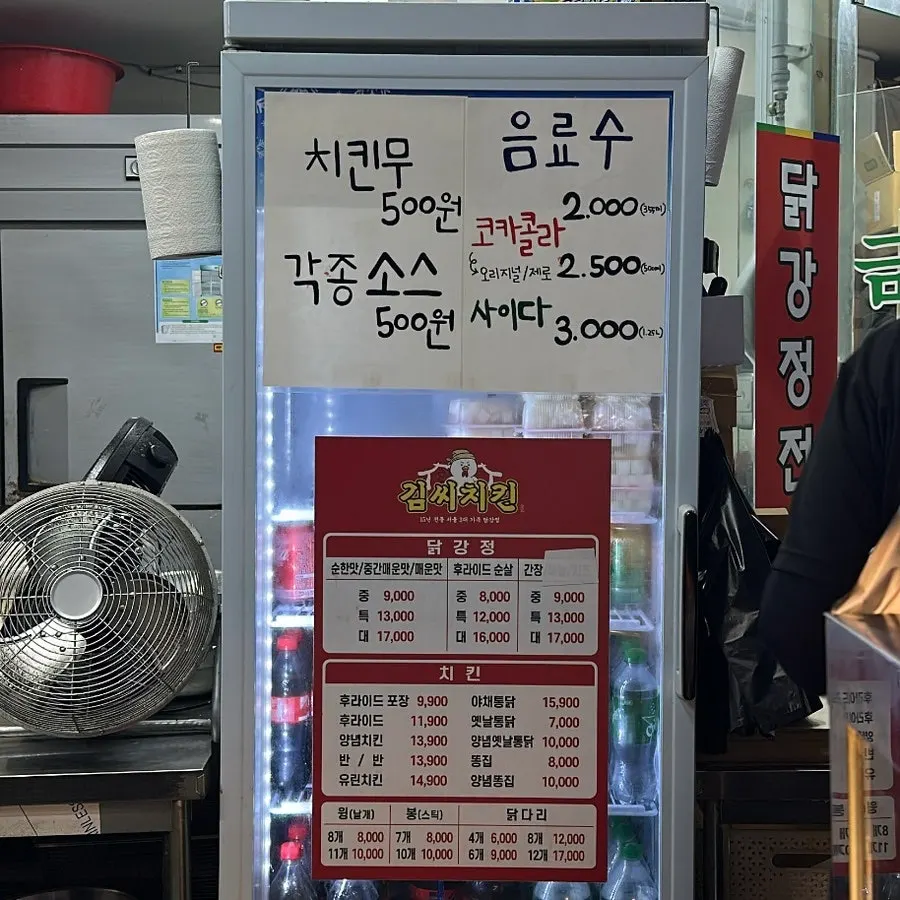 치킨무
500원
각종소스
500원
음료수
2.000(355ml)
코카콜라
오리지널/제로 2.500(500ml)
사이다
3.000(1.25L)
닭강정전
김씨치킨
닭강정
순한맛/중간매운맛/매운맛 후라이드 순살 간장
중 9,000 중 8,000 중 9,000
특 13,000 특 12,000 특 13,000
대 17,000 대 16,000 대 17,000
치킨
후라이드 포장 9,900 야채통닭 15,900
후라이드 11,900 옛날통닭 7,000
양념치킨 13,900 양념옛날통닭 10,000
반 / 반 13,900 똥집 8,000
유린치킨 14,900 양념똥집 10,000
윙(날개) 봉(스틱) 닭다리
8개 8,000 7개 8,000 4개 6,000 8개 12,000
11개 10,000 10개 10,000 6개 9,000 12개 17,000